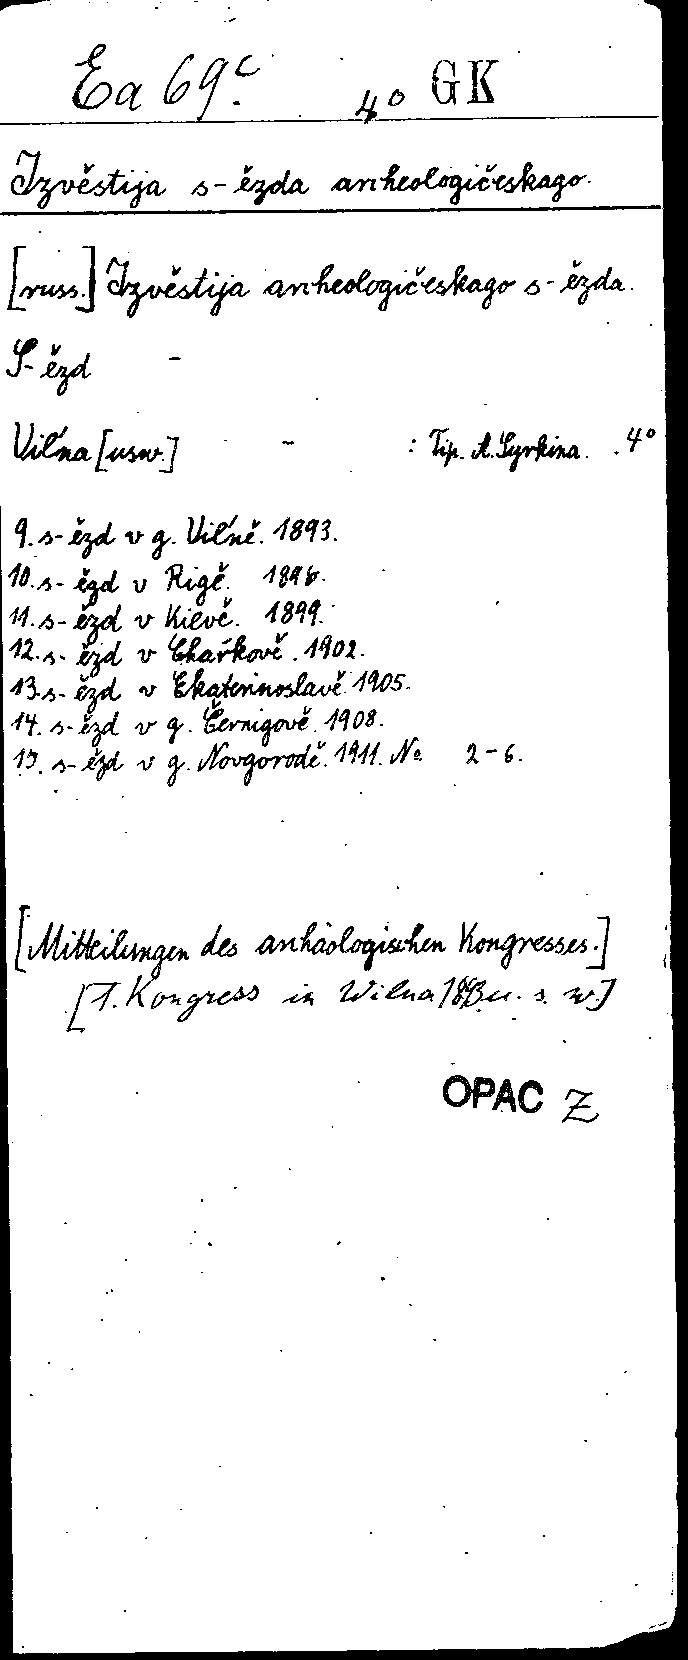 Ea 69c. 4° GK
Izvěstija s-ězda archeologičeskago.
[russ.] Izvěstija archeologičeskago s-ězda.
S-ězd -
Viĺna [usw.] - : Tip. A. Syrkina. 4°
9. s-ězd v g. Viĺně. 1893.
10. s-ězd v Rigě. 1896.
11. s-ězd v Kievě. 1899.
12. s-ězd v Chaŕkově. 1902.
13. s-ězd v Ekaterinoslavě. 1905.
14. s-ězd v g. Černigově. 1908.
15. s-ězd v g. Novgorodě. 1911. No 2-6.
[Mitteilungen des archäologischen Kongresses.]
Kongress in Wilna 1893 u. s. w.]
OPAC Z